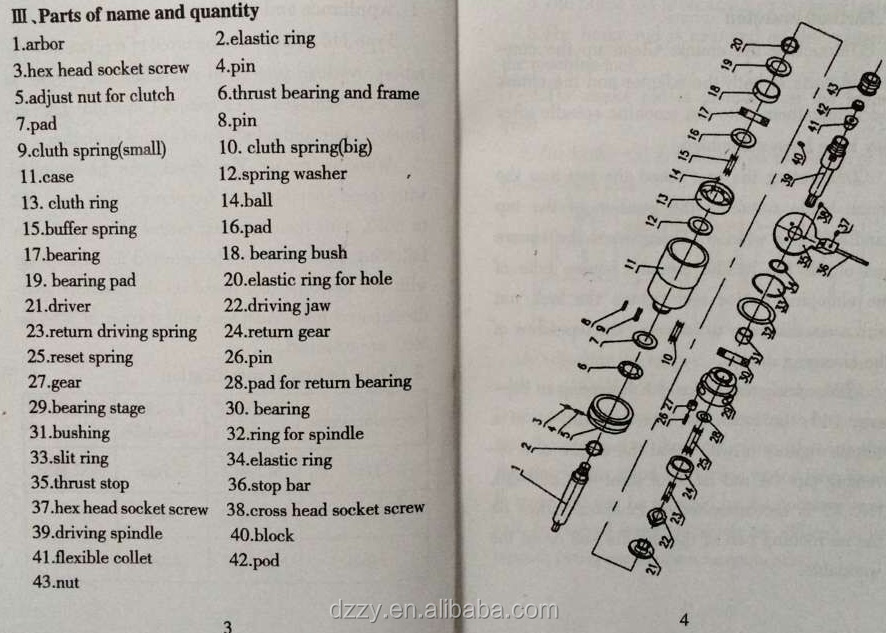 III、Parts of name and quantity
1.arbor 2.elastic ring
3.hex head socket screw 4.pin
5.adjust nut for clutch 6.thrust bearing and frame
7.pad 8.pin
9.cluth spring(small) 10. cluth spring(big)
11.case 12.spring washer
13. cluth ring 14.ball
15.buffer spring 16.pad
17.bearing 18. bearing bush
19. bearing pad 20.elastic ring for hole
21.driver 22.driving jaw
23.return driving spring 24.return gear
25.reset spring 26.pin
27.gear 28.pad for return bearing
29.bearing stage 30. bearing
31.bushing 32.ring for spindle
33.slit ring 34.elastic ring
35.thrust stop 36.stop bar
37.hex head socket screw 38.cross head socket screw
39.driving spindle 40.block
41.flexible collet 42.pod
43.nut
3
1
2
3
4
5
6
7
8
9
10
11
12
13
14
15
16
17
18
19
20
21
22
23
24
25
26
27
28
29
30
31
32
33
34
35
36
37
38
39
40
41
42
43
4
dzzy.en.alibaba.com